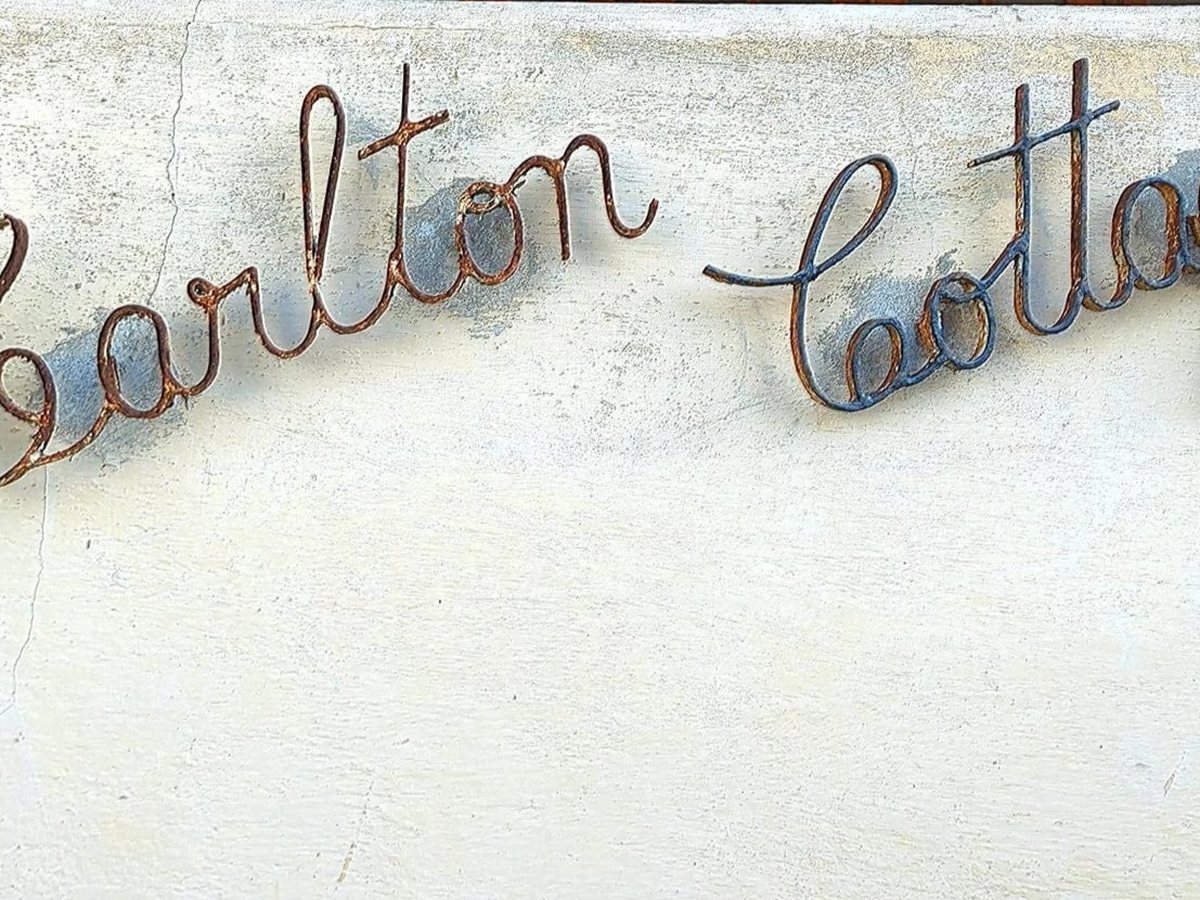 Carlton Cotta